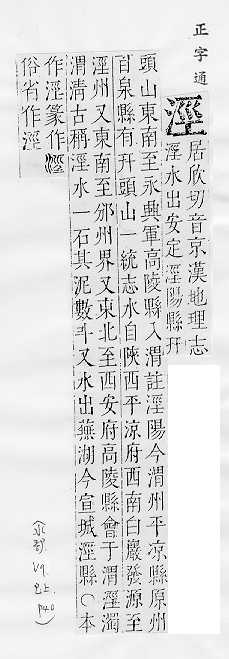 正字通
涇
居欣切音京漢地理志
涇水出安定涇陽縣幵
頭山東南至永興軍高陵縣入渭註涇陽今渭州平凉縣原州
百泉縣有幵頭山一統志水自陝西平凉府西南白巖發源至
涇州又東南至邠州界又東北至西安府高陵縣會于渭涇濁
渭清古稱涇水一石其泥數斗又水出蕪湖今宣城涇縣○本
作涇篆作涇
俗省作泾
(水部.
V9.
巳上.
P40)